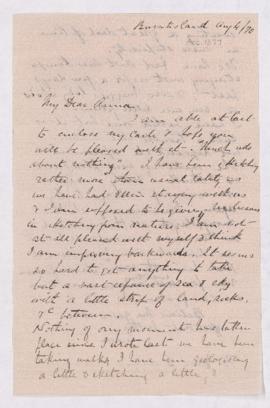 Burntisland Aug 4/90
My Dear Anna
I am able at last
to enclose my carte & hope you
will be pleased with it - "Much ado
about nothing". I have been sketching
rather more than usual lately as
we have had Ellen staying with us
& I am supposed to be giving her lessons
in sketching from nature. I am not
at all pleased with myself & think
I am improving backwards. It seems
so hard to get anything to take
but a vast expanse of sea & sky
with a little strip of land, rocks,
&c between.
Nothing of any moment has taken
place since I wrote last we have been
taking walks, I have been geologising
a little & sketching a little, &